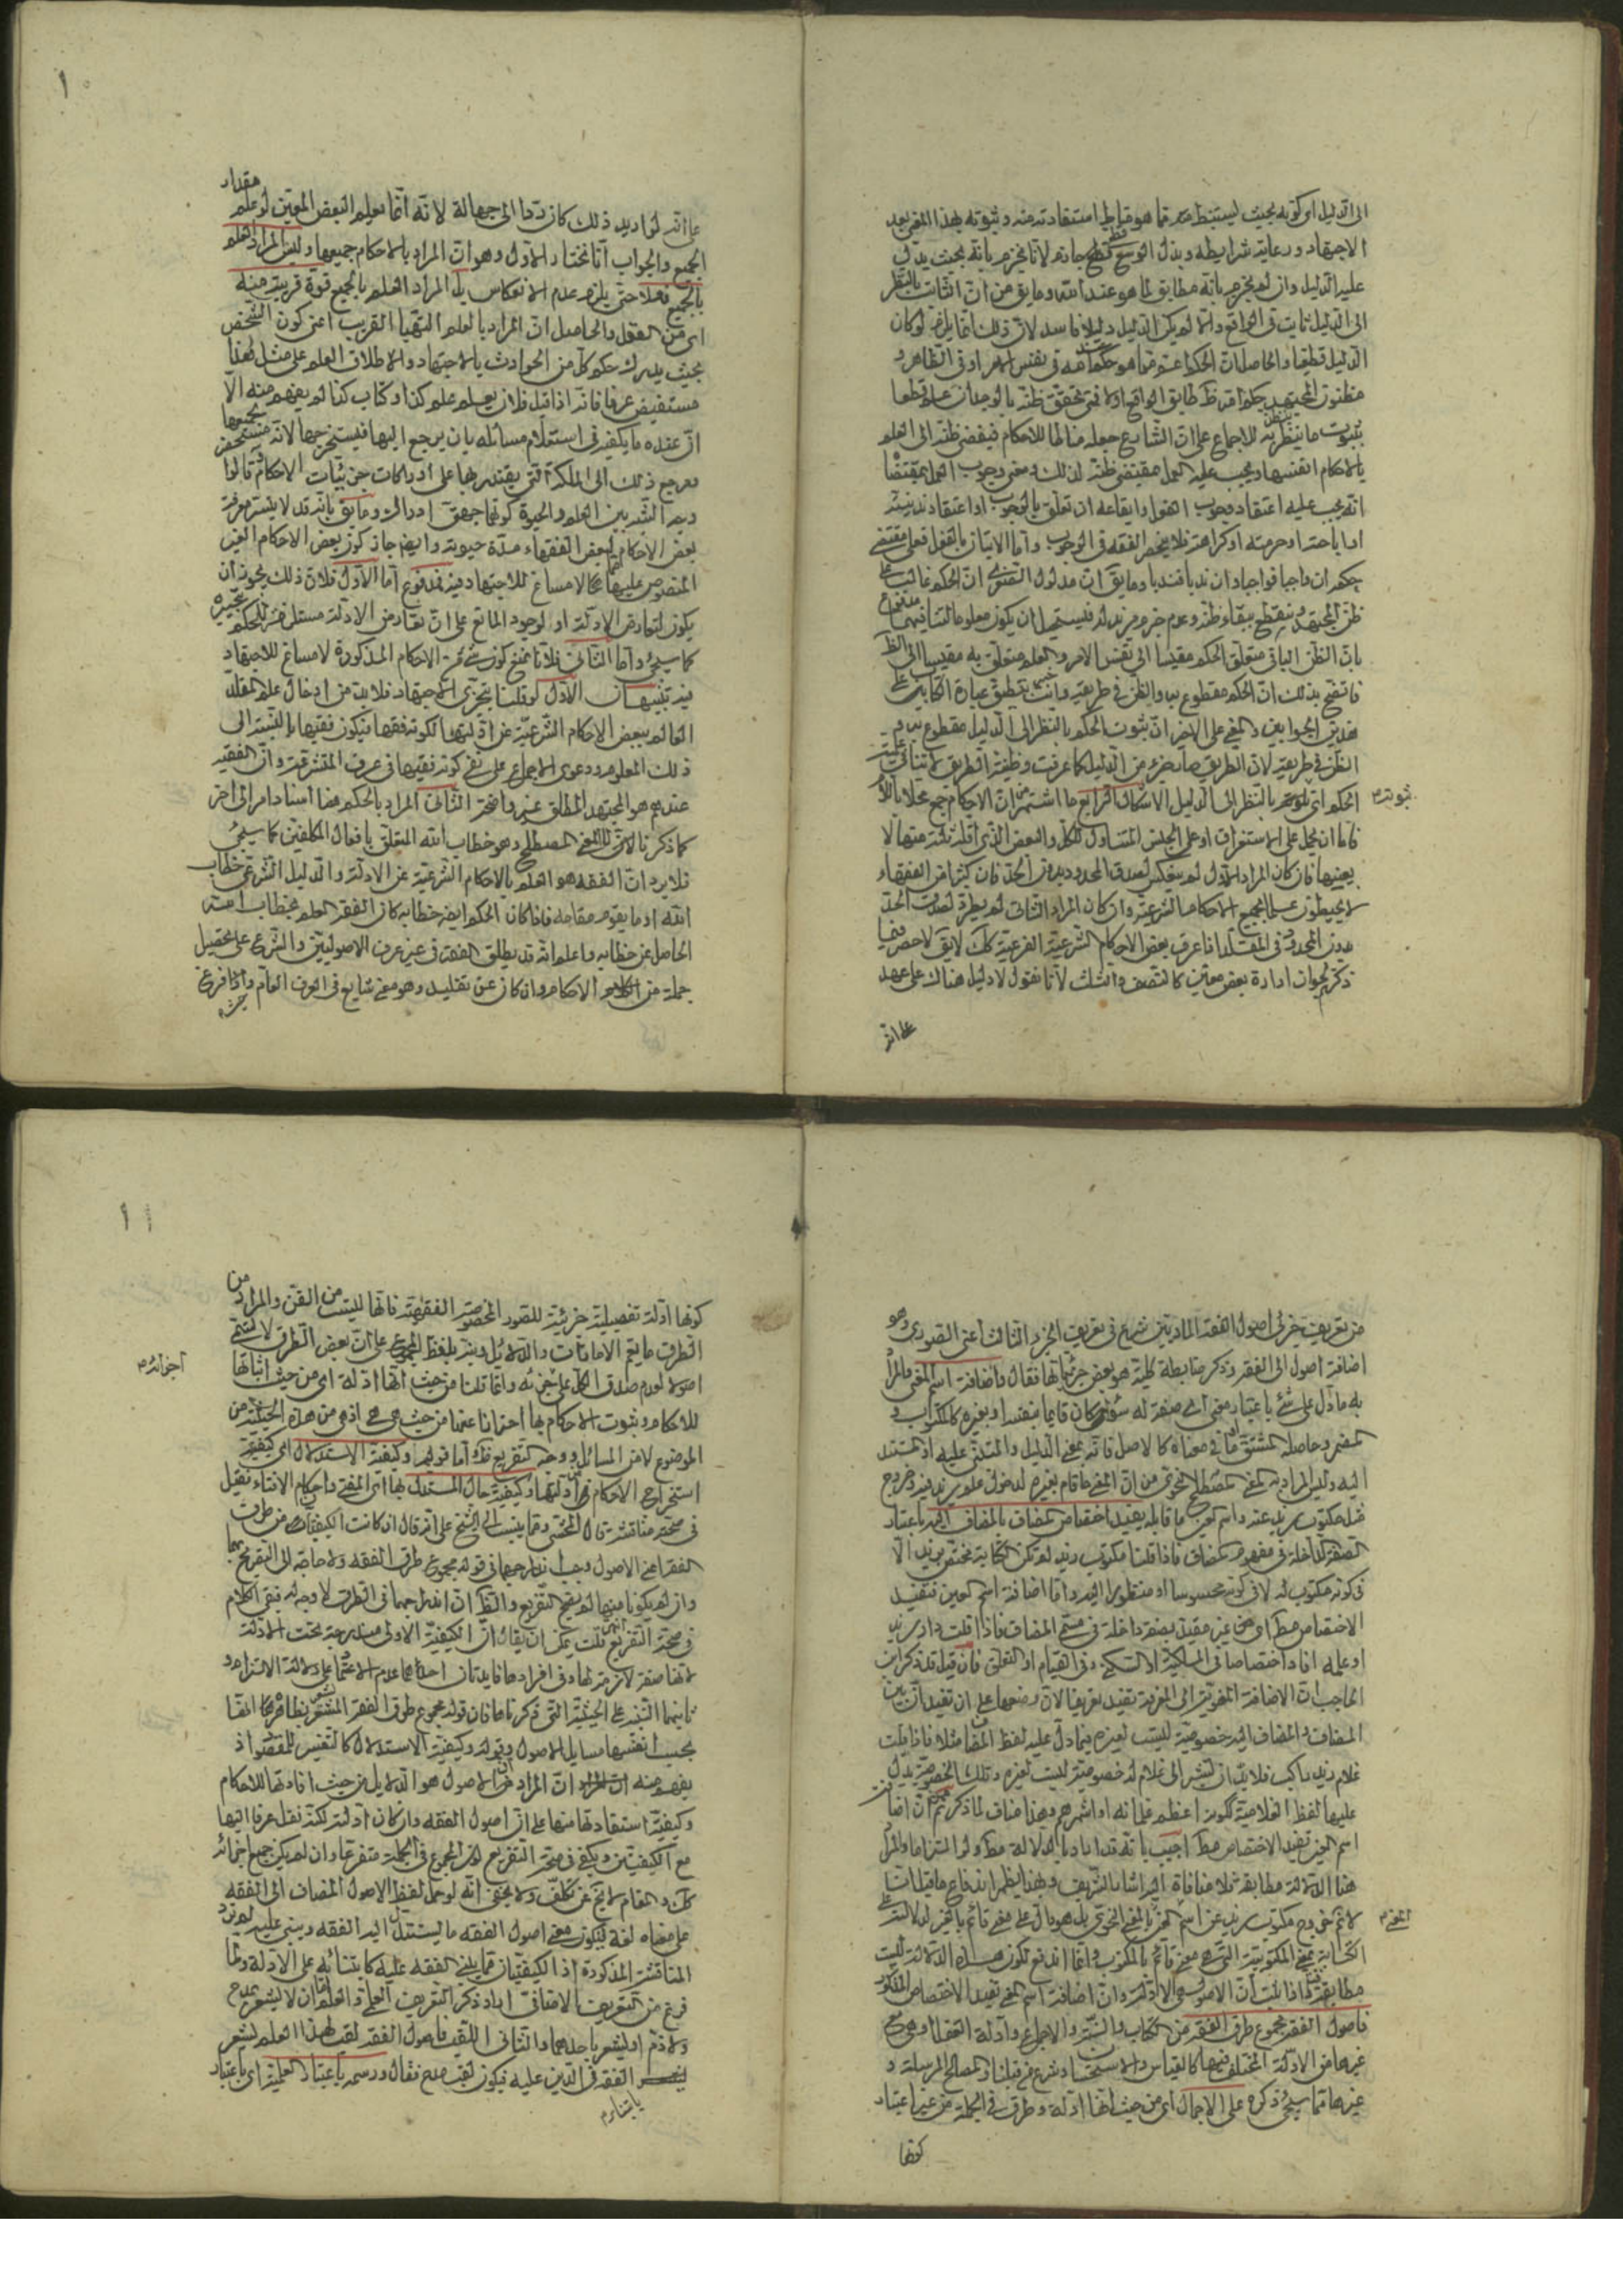 الى الدليل اى كونه بحيث يستنبط منه مما هو مناط استفادته منه وثبوته بهذا المعنى بعد
الاجتهاد ورعاية شرايطه وبذل الوسع قطعى جازم لانا نجزم بانه بحيث يدل
عليه الدليل وان لم نجزم بانه مطابق لما هو عند الله وما يق من ان الثابت بالنظر
الى الدليل ثابت فى الواقع والا لم يكن الدليل دليلا فاسد لان ذلك انما يلزم لو كان
الدليل قطعيا والحاصل ان الحكم اعم مما هو حكم الله فى نفس الامر او فى الظاهر و
مظنون المجتهد حكم الله ظ طابق الواقع اولا فمتى تحقق ظنه بالوجدان علم قطعا
بثبوت ما نيط ظنه به للاجماع على ان الشارع جعله مناطا للاحكام فيفضى ظنه الى العلم
بالاحكام انفسها ويجب عليه العمل بمقتضى ظنه لذلك ومعنى وجوب العمل بمقتضاه
انه يجب عليه اعتقاد وجوب الفعل وايقاعه ان تعلق بالوجوب او اعتقاد ندبيته
او اباحته او حرمته او كراهته فلا ينحصر الفقه فى الوجوب واما الاتيان بالفعل فعلى مقتضى
حكمه ان واجبا فواجبا وان ندبا فندبا وما يق ان مدلول الفتوى ان الحكم غالب على
ظن المجتهد وينقطع ببقاء ظنه وعدم جزم مزيد له فيستحيل ان يكون معلوما لتنافيهما مندفع
بان الظن الباقى متعلق الحكم مقيسا الى نفس الامر والعلم متعلق به مقيسا الى الظ
فاتضح بذلك ان الحكم مقطوع به والظن فى طريقه وانت خبير بتطبيق عبارة الكتاب على
هذين الجوابين والمعنى على الاخير ان ثبوت الحكم بالنظر الى الدليل مقطوع به و
الظن فى طريقه لان الطريق ما يجزء من الدليل كما عرفت وظنية الطريق لا تنافى علمية
الحكم اى ثبوته بالنظر الى الدليل الاشكال الرابع ما اشتهر من ان الاحكام جمع محلا باللام
ثبوته م
فاما ان يحمل على الاستغراق او على الجنس المتناول للكل والبعض الذى اقله ثلثة منها لا
بعينها فان كان المراد الاول لم ينعكس لصدق المحدود بدون الحد فان كثيرا من الفقهاء
لا يحيطون علما بجميع الاحكام الشرعية وان كان المراد الثانى لم يطرد لصدق الحد
بدون المحدود فى المقلد اذا عرف بعض الاحكام الشرعية الفرعية كك لا يق لا حصر فيما
ذكرتم لجواز ارادة بعض معين كالنصف والثلث لانا نقول لا دليل هناك على عهد
على انه
١٠
على انه لو اريد ذلك كان ردا الى جهالة لانه انما يعلم البعض المعين لو علم مقدار
الجميع والجواب انا نختار الاول وهو ان المراد بالاحكام جميعها وليس المراد العلم
بالجميع فعلا حتى يلزم عدم الانعكاس بل المراد العلم بالجميع قوة قريبة منه
اى من الفعل والحاصل ان المراد بالعلم التهيأ القريب اعنى كون الشخص
بحيث يدرك حكم كل من الحوادث بالاجتهاد والاطلاق العلم على مثل هذا
مستفيض عرفا فانه اذا قيل فلان يعلم علم كذا وكتاب كذا لم يفهم منه الا
ان عنده ما يكفيه فى استعلام مسائله بان يرجع اليها فيستخرجها لانه مستحضر بجميعها
ومرجع ذلك الى الملكة التى يقتدر بها على ادراكات جزئيات الاحكام قالوا
وجه الشبه بين العلم والحيوة كونهما جهتى ادراك وما يق بانه قد لا يتيسر معرفة
بعض الاحكام لبعض الفقهاء مدة حيوته وايضا جاز كون بعض الاحكام الغير
المنصوص عليها مما لا مساغ للاجتهاد فيه فمدفوع اما الاول فلان ذلك يجوز ان
يكون لتعارض الادلة او لوجود المانع على ان تعارض الادلة مستلزم للحكم بتخييره
كما سيجئ واما الثانى فلانا نمنع كون شئ من الاحكام المذكورة لا مساغ للاجتهاد
فيه تنبيهان الاول لو قلنا بتجزى الاجتهاد فلا بد من ادخال علم المقلد
العالم ببعض الاحكام الشرعية عن ادلتها لكونه فقها فيكون فقيها بالنسبة الى
ذلك المعلوم ودعوى الاجماع على نفى كونه فقيها فى عرف المتشرعة وان الفقيه
عندهم هو المجتهد المطلق غير واضحة الثانى المراد بالحكم هنا اسناد امر الى اخر
كما ذكرنا لا المعنى المصطلح وهو خطاب الله المتعلق بافعال المكلفين كما سيجئ
فلا يرد ان الفقه هو العلم بالاحكام الشرعية عن الادلة والدليل الشرعى خطاب
الله او ما يقوم مقامه فاذا كان الحكم ايضا خطابه كان الفقه العلم بخطاب الله
الحاصل عن خطابه واعلم انه قد يطلق الفقه فى غير عرف الاصوليين والشرع على تحصيل
جملة من الاحكام وان كان عن تقليد وهو معنى شايع فى العرف العام واذا فرغ
من تعريف جزئى اصول الفقه الماديين شرع فى تعريف الجزء الثالث اعنى الصورى وهو
اضافة اصول الى الفقه وذكر ضابطة كلية هو بعض جزئياتها فقال واضافة اسم المعنى والمراد
به ما دل على شئ باعتبار معنى اى صفة له سواء كان قايما بنفسه او بغيره كالمكتوب و
المضمر وحاصله المشتق او ما فى معناه كالاصل فانه بمعنى الدليل والمبتنى عليه اذ المستند
اليه وليس المراد به المعنى المصطلح النحوى من ان المعنى ما قام بغيره لدخول علم زيد فيه وخروج
مثل مكتوب زيد عنه واسم العين ما قابله يفيد اختصاص المضاف بالمضاف اليه باعتبار
الصفة الداخلة فى مفهوم المضاف فاذا قلنا مكتوب زيد لم تكن الكتابة مختص بزيد الا
فى كونه مكتوب له لا فى كونه محسوسا او منظورا اليه واما اضافة اسم العين فتفيد
الاختصاص مط اى من غير مقيد بصفة داخلة فى مسمى المضاف فاذا قلت دار زيد
او علمه افاد اختصاصا فى الملكية او السكنى وفى القيام او التعلق فان قيل قد ذكر ابن
الحاجب ان الاضافة المعنوية الى المعرفة تفيد تعريفا لان وضعها على ان تفيد ان بين
المضاف والمضاف اليه خصوصية ليست لغيره فيما دل عليه لفظ المضاف مثلا فاذا قلت
غلام زيد راكب فلا بد ان تشير الى غلام له خصوصية ليست لغيره وتلك الخصوصية يدل
عليها لفظ الغلامية لكونه اعظم غلمانه او اشهرهم وهذا مناف لما ذكرتم من ان اضافة
اسم العين تفيد الاختصاص مط اجيب بانه قد اراد بالدلالة مط ولو التزاما والمراد
هنا الدلالة مطابقة فلا منافاة اليه اشار الشريف وبهذا يظهر اندفاع ما قيل انا
لا نم خروج مكتوب زيد عن اسم المعنى بالمعنى النحوى بل هو دال على معنى قائم بالغير لدلالته على
المعنى م
الكتابة بمعنى المكتوبية التى هى معنى قائم بالمكتوب وانما اندفع لكون هذه الدلالة ليست
مطابقة فاذا ثبت ان الاصول هى الادلة وان اضافة اسم المعنى تفيد الاختصاص المذكور
فاصول الفقه مجموع طرق الفقه من الكتاب والسنة والاجماع وادلة العقل او هى مع
غيرها من الادلة المختلف فيها كالقياس والاستحسان وشرع من قبلنا والمصالح المرسلة و
غيرها مما سيجئ ذكره على الاجمال اى من حيث انها ادلة وطرق فى الجملة من غير اعتبار
كونها
١١
كونها ادلة تفصيلية جزئية للصور المخصوصة الفقهية فانها ليست من الفن والمراد من
الطرق ما يعم الامارات والدلائل وفيه بلفظ المجموع على ان بعض الطرق لا يسمى
اصولا لعدم صدق الكل على جزئه وانما قلنا من حيث انها ادلة اى من حيث اثباتها
اجزائه م
للاحكام وثبوت الاحكام بها احترازا عنها من حيث هى هى اذ هى من هذه الحيثية من
الموضوع لا من المسائل ووجه التفريع ظ واما قوله وكيفية الاستدلال اى كيفية
استخراج الاحكام من ادلتها وكيفية حال المستدل بها اى المفتى واحكام الافتاء فقيل
فى صحته مناقشة قال المحشى ومما ينسب الى الشيخ على انه قال ان كانت الكيفيتان من طرق
الفقه اعنى الاصول وجب اندراجهما فى قوله مجموع طرق الفقه ولا حاجة الى التصريح بهما
وان لم يكونا منها لم يصح التفريع والظ ان اندراجهما فى الطرق لا وجه له فبقى الكلام
فى صحة التفريع انتهى قلت يمكن ان يقال ان الكيفية الاولى مندرجة تحت الادلة
لانها صفة لازمة لها وفى افرادها فايدتان احدهما عدم الاعتماد على دلالة الالتزام و
ثانيهما التنبيه على الحيثية التى ذكرناها فان قوله مجموع طرق الفقه المشعر بظاهرها انها
بحسب انفسها مسايل الاصول وقوله وكيفية الاستدلال كالتفسير للمقصود اذ
يفهم منه ان المراد من الاصول هو الدلايل من حيث افادتها للاحكام
وكيفية استفادتها منها على ان اصول الفقه وان كان ادلته لكنه نقل عرفا اليها
مع الكيفيتين ويكفى فى صحة التفريع كون المجموع فى الجملة متفرعا وان لم يكن جميع اجزائه
كك والمقام لا يخ عن تكلف ولا يخفى انه لو حمل لفظ الاصول المضاف الى الفقه
على معناه لغة ليكون معنى اصول الفقه ما يستند اليه الفقه ويبنى عليه لم ترد
المناقشة المذكورة اذ الكيفيتان مما يبنى الفقه عليه كابتنائه على الادلة ولما
فرغ من التعريف الاضافى اراد ذكر التعريف العلمى والعلم اما ان لا يشعر بمدح
ولا ذم او يشعر باحدهما والثانى اللقب فاصول الفقه لقب لهذا العلم يشعر
الفقه فى الدين عليه فيكون لقب مدح فقال ورسمه باعتبار العلمية اى باعتبار
بابتناء م